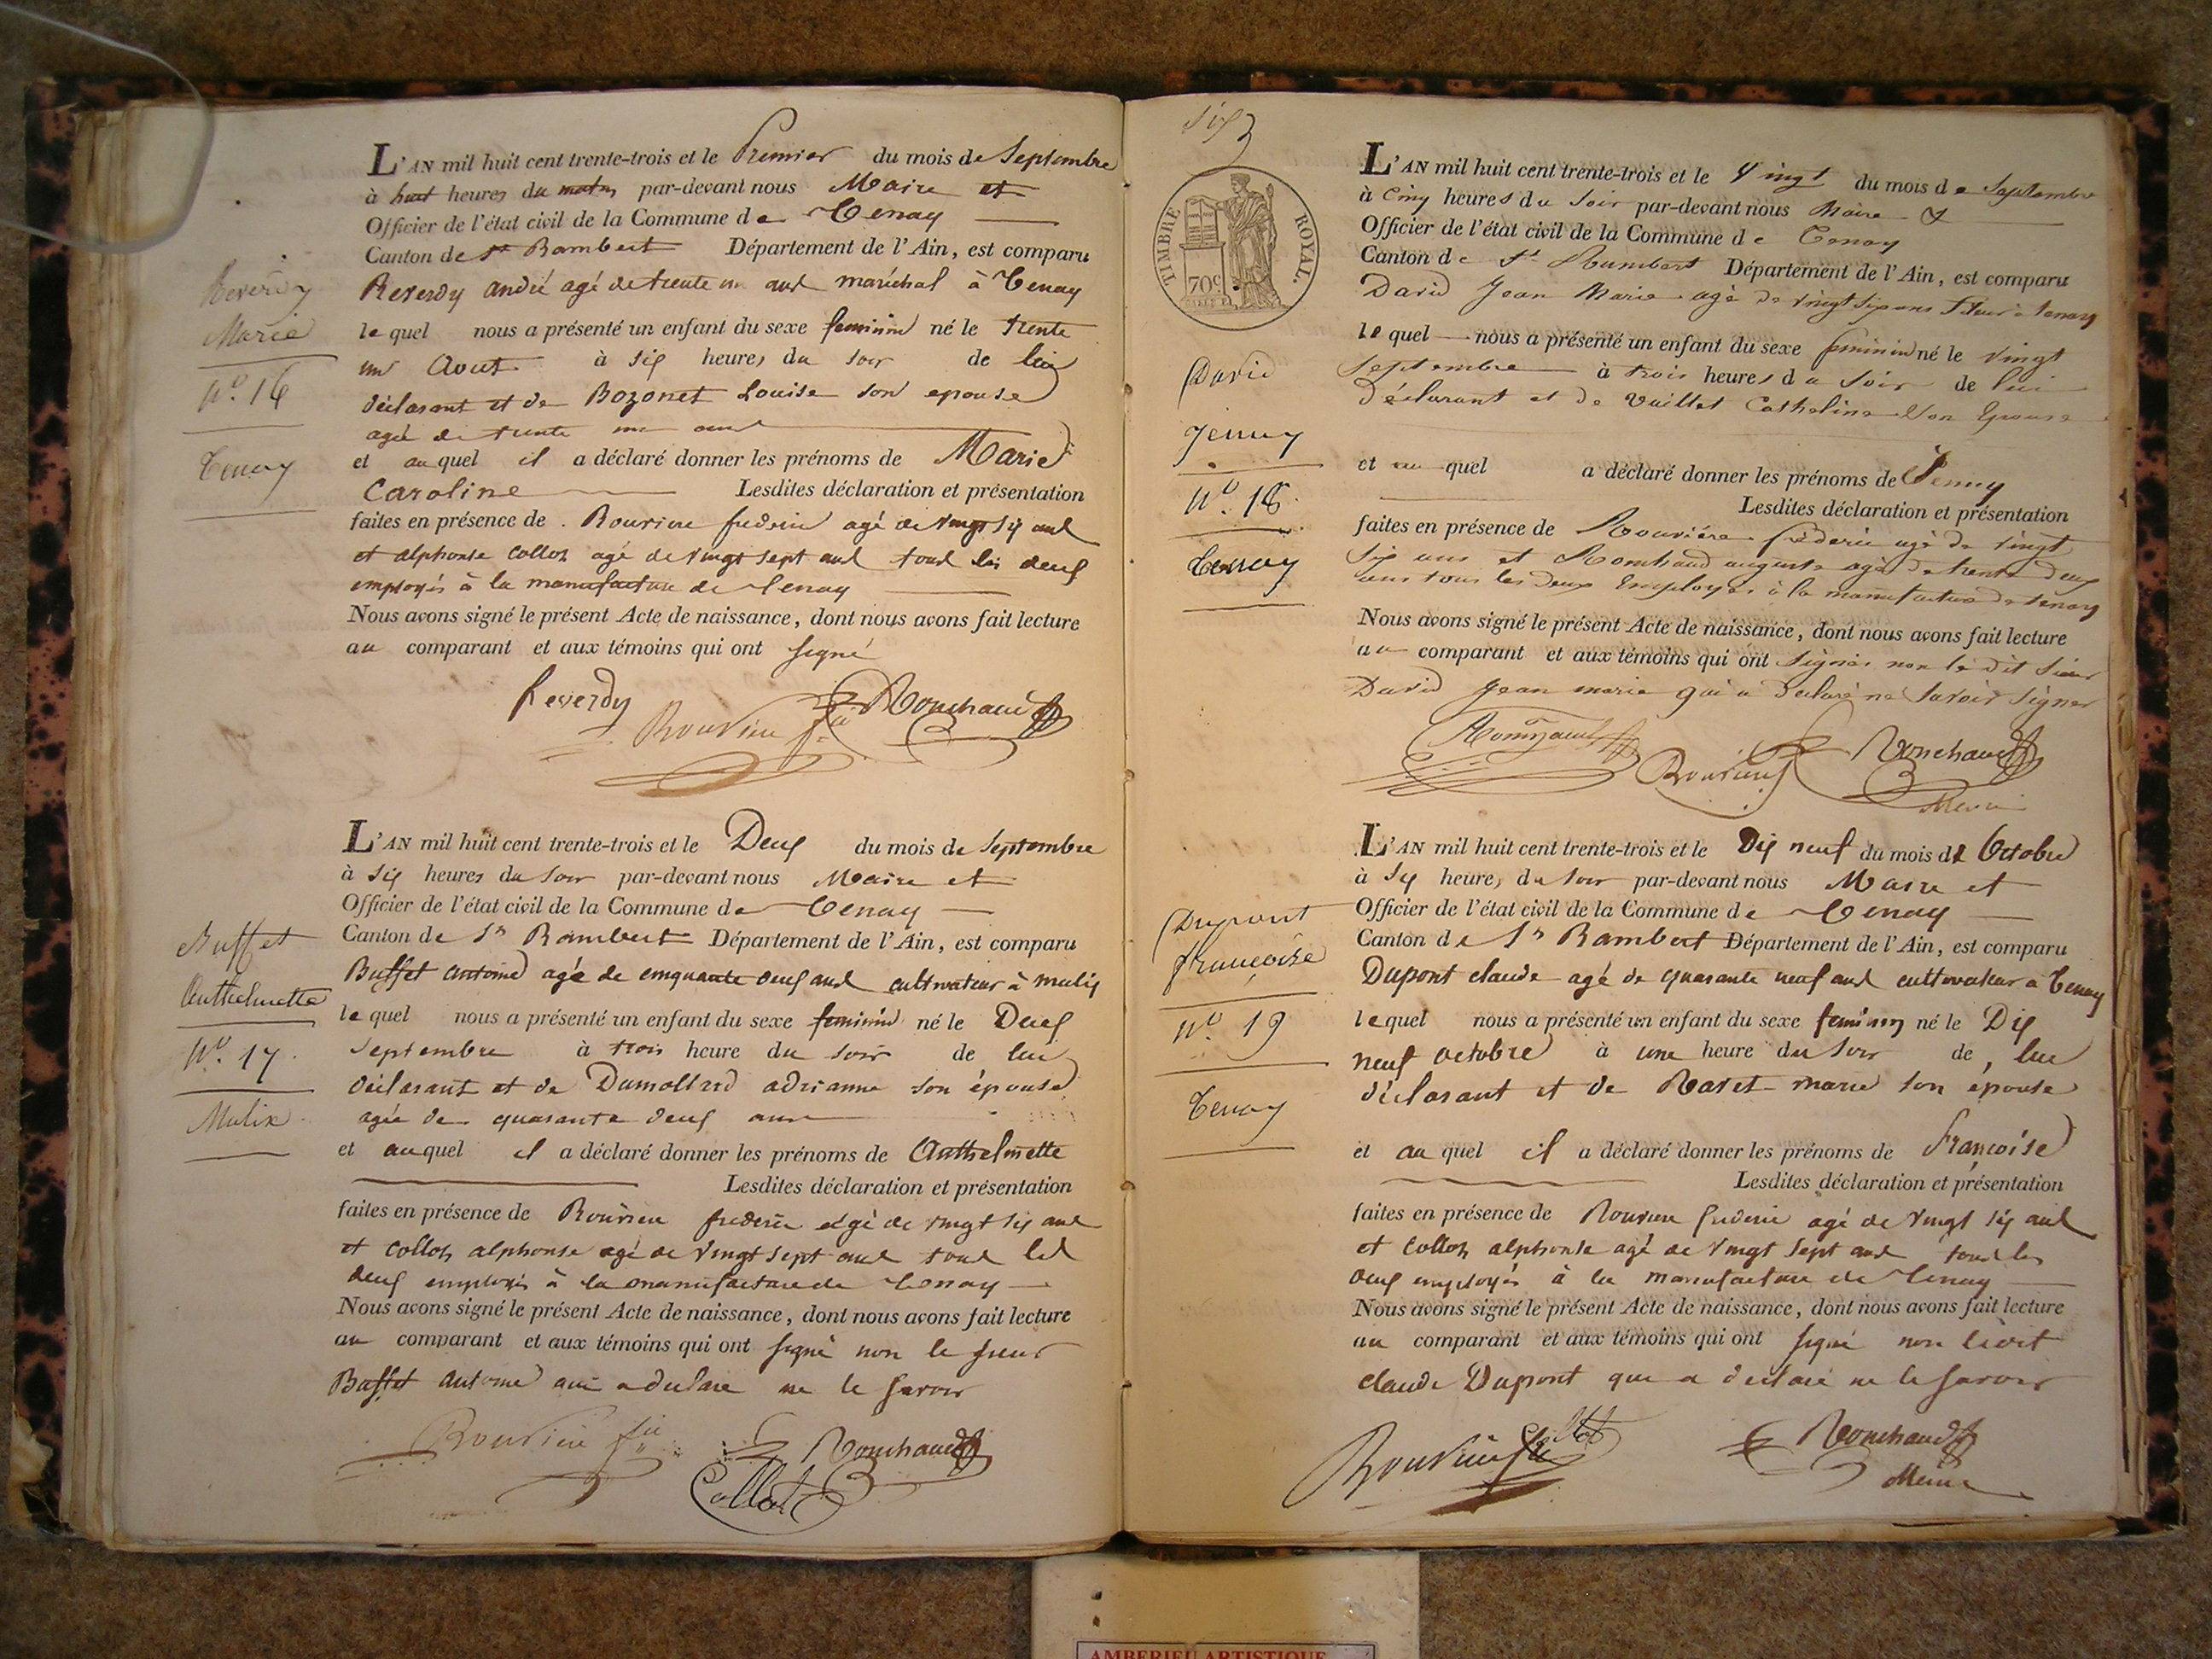 Reverdy
Marie
N.º 16
Tenay
L'AN mil huit cent trente-trois et le Premier du mois de Septembre
à huit heures du matin par-devant nous Maire et
Officier de l'état civil de la Commune de Tenay
Canton de St Rambert Département de l'Ain, est comparu
Reverdy andré agé de trente un ans maréchal à Tenay
lequel nous a présenté un enfant du sexe feminin né le trente
un Aout à six heures du soir de lui
déclarant et de Bozonet Louise son epouse
agée de trente un ans
et auquel il a déclaré donner les prénoms de Marie
Caroline Lesdites déclaration et présentation
faites en présence de Rouviere frederic agé de vingt six ans
et alphonse Collot agé de vingt sept ans tous les deux
employés à la manufacture de Tenay
Nous avons signé le présent Acte de naissance, dont nous avons fait lecture
au comparant et aux témoins qui ont signé
Reverdy Rouviere fic Ronchaud
Buffet
Anthelmette
N.º 17.
Malix
L'AN mil huit cent trente-trois et le Deux du mois de Septembre
à six heures du soir par-devant nous Maire et
Officier de l'état civil de la Commune de Tenay
Canton de St Rambert Département de l'Ain, est comparu
Buffet antoine agé de cinquante deux ans cultivateur à malix
lequel nous a présenté un enfant du sexe feminin né le Deux
septembre à trois heure du soir de lui
déclarant et de Dumollard adrianne son épouse
agée de quarante deux ans
et auquel il a déclaré donner les prénoms de Anthelmette
Lesdites déclaration et présentation
faites en présence de Rouviere frederic agé de vingt six ans
et Collot alphonse agé de vingt sept ans tous les
deux employés à la manufacture de Tenay
Nous avons signé le présent Acte de naissance, dont nous avons fait lecture
au comparant et aux témoins qui ont signé non le sieur
Buffet antoine qui a déclaré ne le savoir
Rouviere fic Ronchaud
Collot
six
TIMBRE ROYAL.
70c
David
Jenny
N.º 18.
Tenay
L'AN mil huit cent trente-trois et le Vingt du mois de Septembre
à cinq heures du soir par-devant nous Maire &
Officier de l'état civil de la Commune de Tenay
Canton de St Rambert Département de l'Ain, est comparu
David Jean Marie agé de vingt six ans fileur à tenay
lequel nous a présenté un enfant du sexe feminin né le vingt
septembre à trois heures du soir de lui
Déclarant et de Vuillet Catheline son Epouse
et au quel a déclaré donner les prénoms de Jenny
Lesdites déclaration et présentation
faites en présence de Rouviére fréderic agé de vingt
six ans et Ronchaud auguste agé de trente deux
ans tous les deux Employés à la manufacture de tenay
Nous avons signé le présent Acte de naissance, dont nous avons fait lecture
au comparant et aux témoins qui ont signés non le dit sieur
David Jean marie qui a déclaré ne savoir signer
Rouviere Ronchaud
Dupont
francoise
N.º 19
Tenay
L'AN mil huit cent trente-trois et le Dix neuf du mois de Octobre
à six heures du soir par-devant nous Maire et
Officier de l'état civil de la Commune de Tenay
Canton de St Rambert Département de l'Ain, est comparu
Dupont claude agé de quarante neuf ans cultivateur à Tenay
lequel nous a présenté un enfant du sexe feminin né le Dix
neuf octobre à une heure du soir de lui
déclarant et de Ravet marie son épouse
et au quel il a déclaré donner les prénoms de francoise
Lesdites déclaration et présentation
faites en présence de Rouviere frederic agé de vingt six ans
et Collot alphonse agé de vingt sept ans tous les
deux employés à la manufacture de Tenay
Nous avons signé le présent Acte de naissance, dont nous avons fait lecture
au comparant et aux témoins qui ont signé non ledit
claude Dupont qui a déclaré ne le savoir
Rouviere Collot Ronchaud
Maire
AMBERIEU ARTISTIQUE